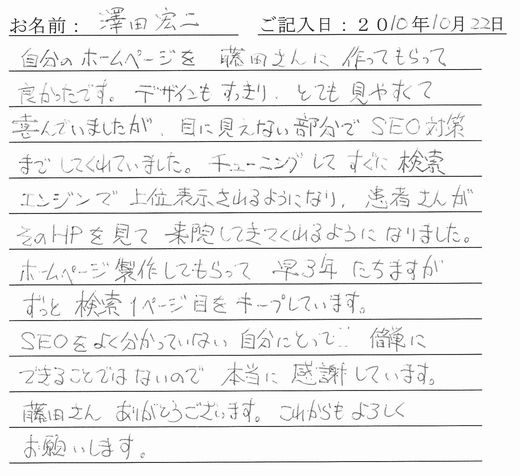 お名前： 澤田宏二 ご記入日：２０10年10月22日
自分のホームページを 藤田さんに 作ってもらって
良かったです。 デザインも すっきり、とても 見やすくて
喜んでいましたが、目に見えない部分で SEO対策
まで してくれていました。 チューニングして すぐに 検索
エンジンで 上位表示されるようになり、 患者さんが
そのHPを見て 来院してきてくれるように なりました。
ホームページ製作してもらって 早3年 たちますが
ずっと 検索1ページ目を キープしています。
SEOをよく分かっていない 自分にとって‥ 簡単に
できることではないので 本当に 感謝しています。
藤田さん ありがとうございます。 これからも よろしく
お願いします。